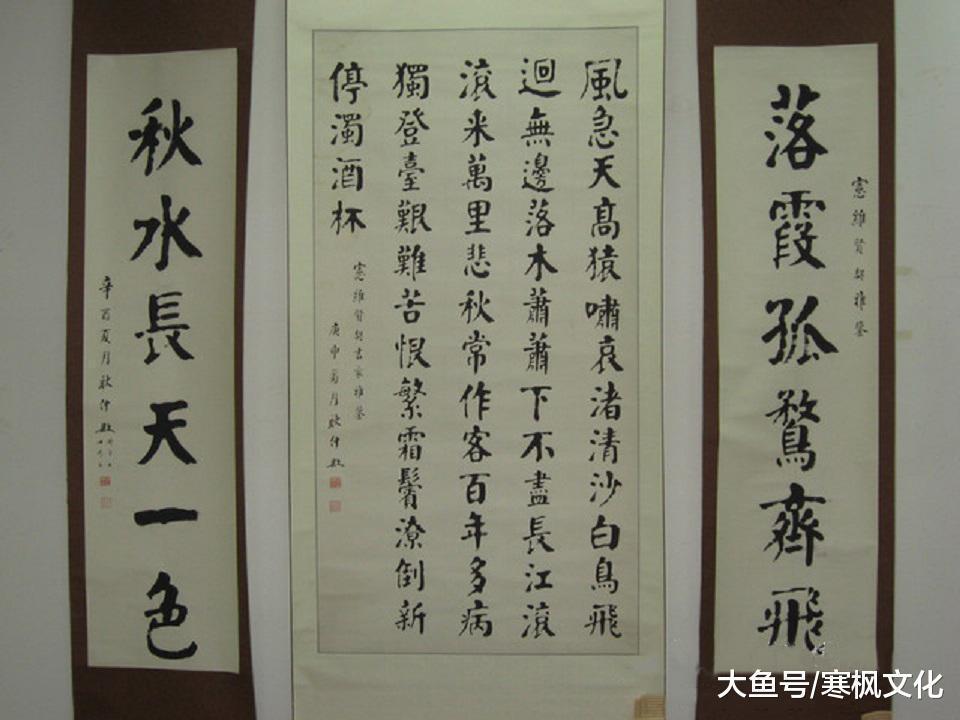 落霞孤鶩齊飛
憲維賢契雅鑒
風急天高猿嘯哀渚清沙白鳥飛
迴無邊落木蕭蕭下不盡長江滾
滾来萬里悲秋常作客百年多病
獨登臺艱難苦恨繁霜鬢潦倒新
停濁酒杯
憲維賢契雅鑒
庚申菊月耿仲敭
秋水長天一色
辛酉夏月耿仲敭
大鱼号/寒枫文化